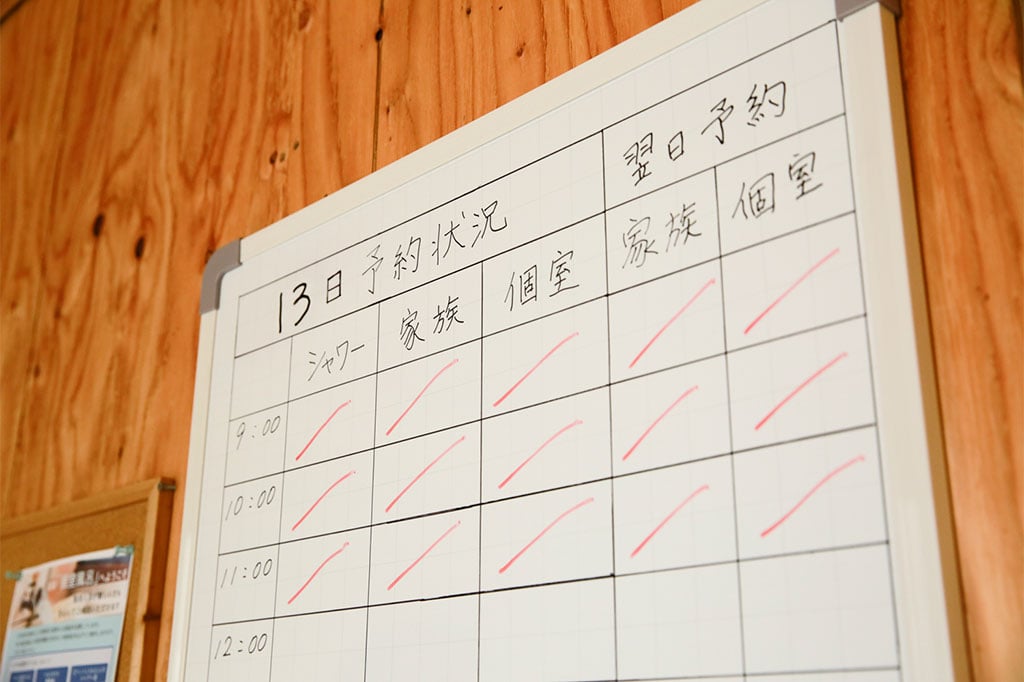 13日予約状況 翌日予約
シャワー 家族 個室 家族 個室
9:00
10:00
11:00
12:00